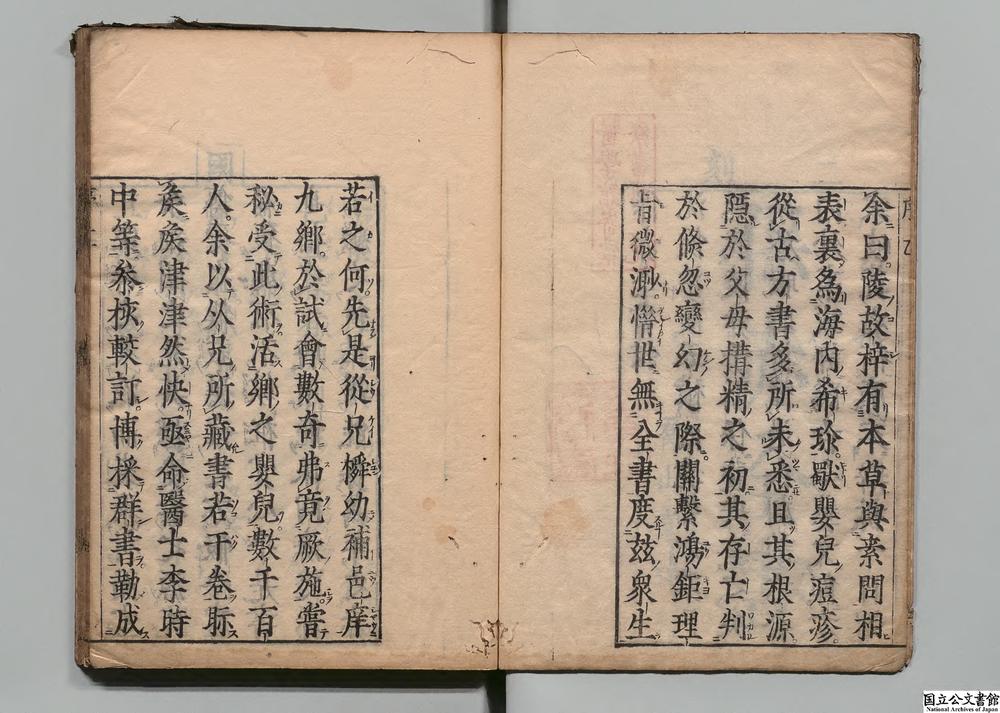 余曰陵故梓有本草與素問相
表裏為海内希珍獸嬰兒痘疹
從古方書多所未悉且其根源
隠於父母搆精之初其存亡判
於倏忽變幻之際關繫鴻鉅理
旨微渺惜世無全書度茲衆生
若之何先是從兄憐幼補邑庠
九鄉於試會數奇弗竟厥施嘗
秘受此術活鄉之嬰兒數千百
人余以从兄所藏書若干卷眎
矦矦津津然快亟命醫士李時
中等參挍較訂博採群書勤成
国立公文書館
National Archives of Japan